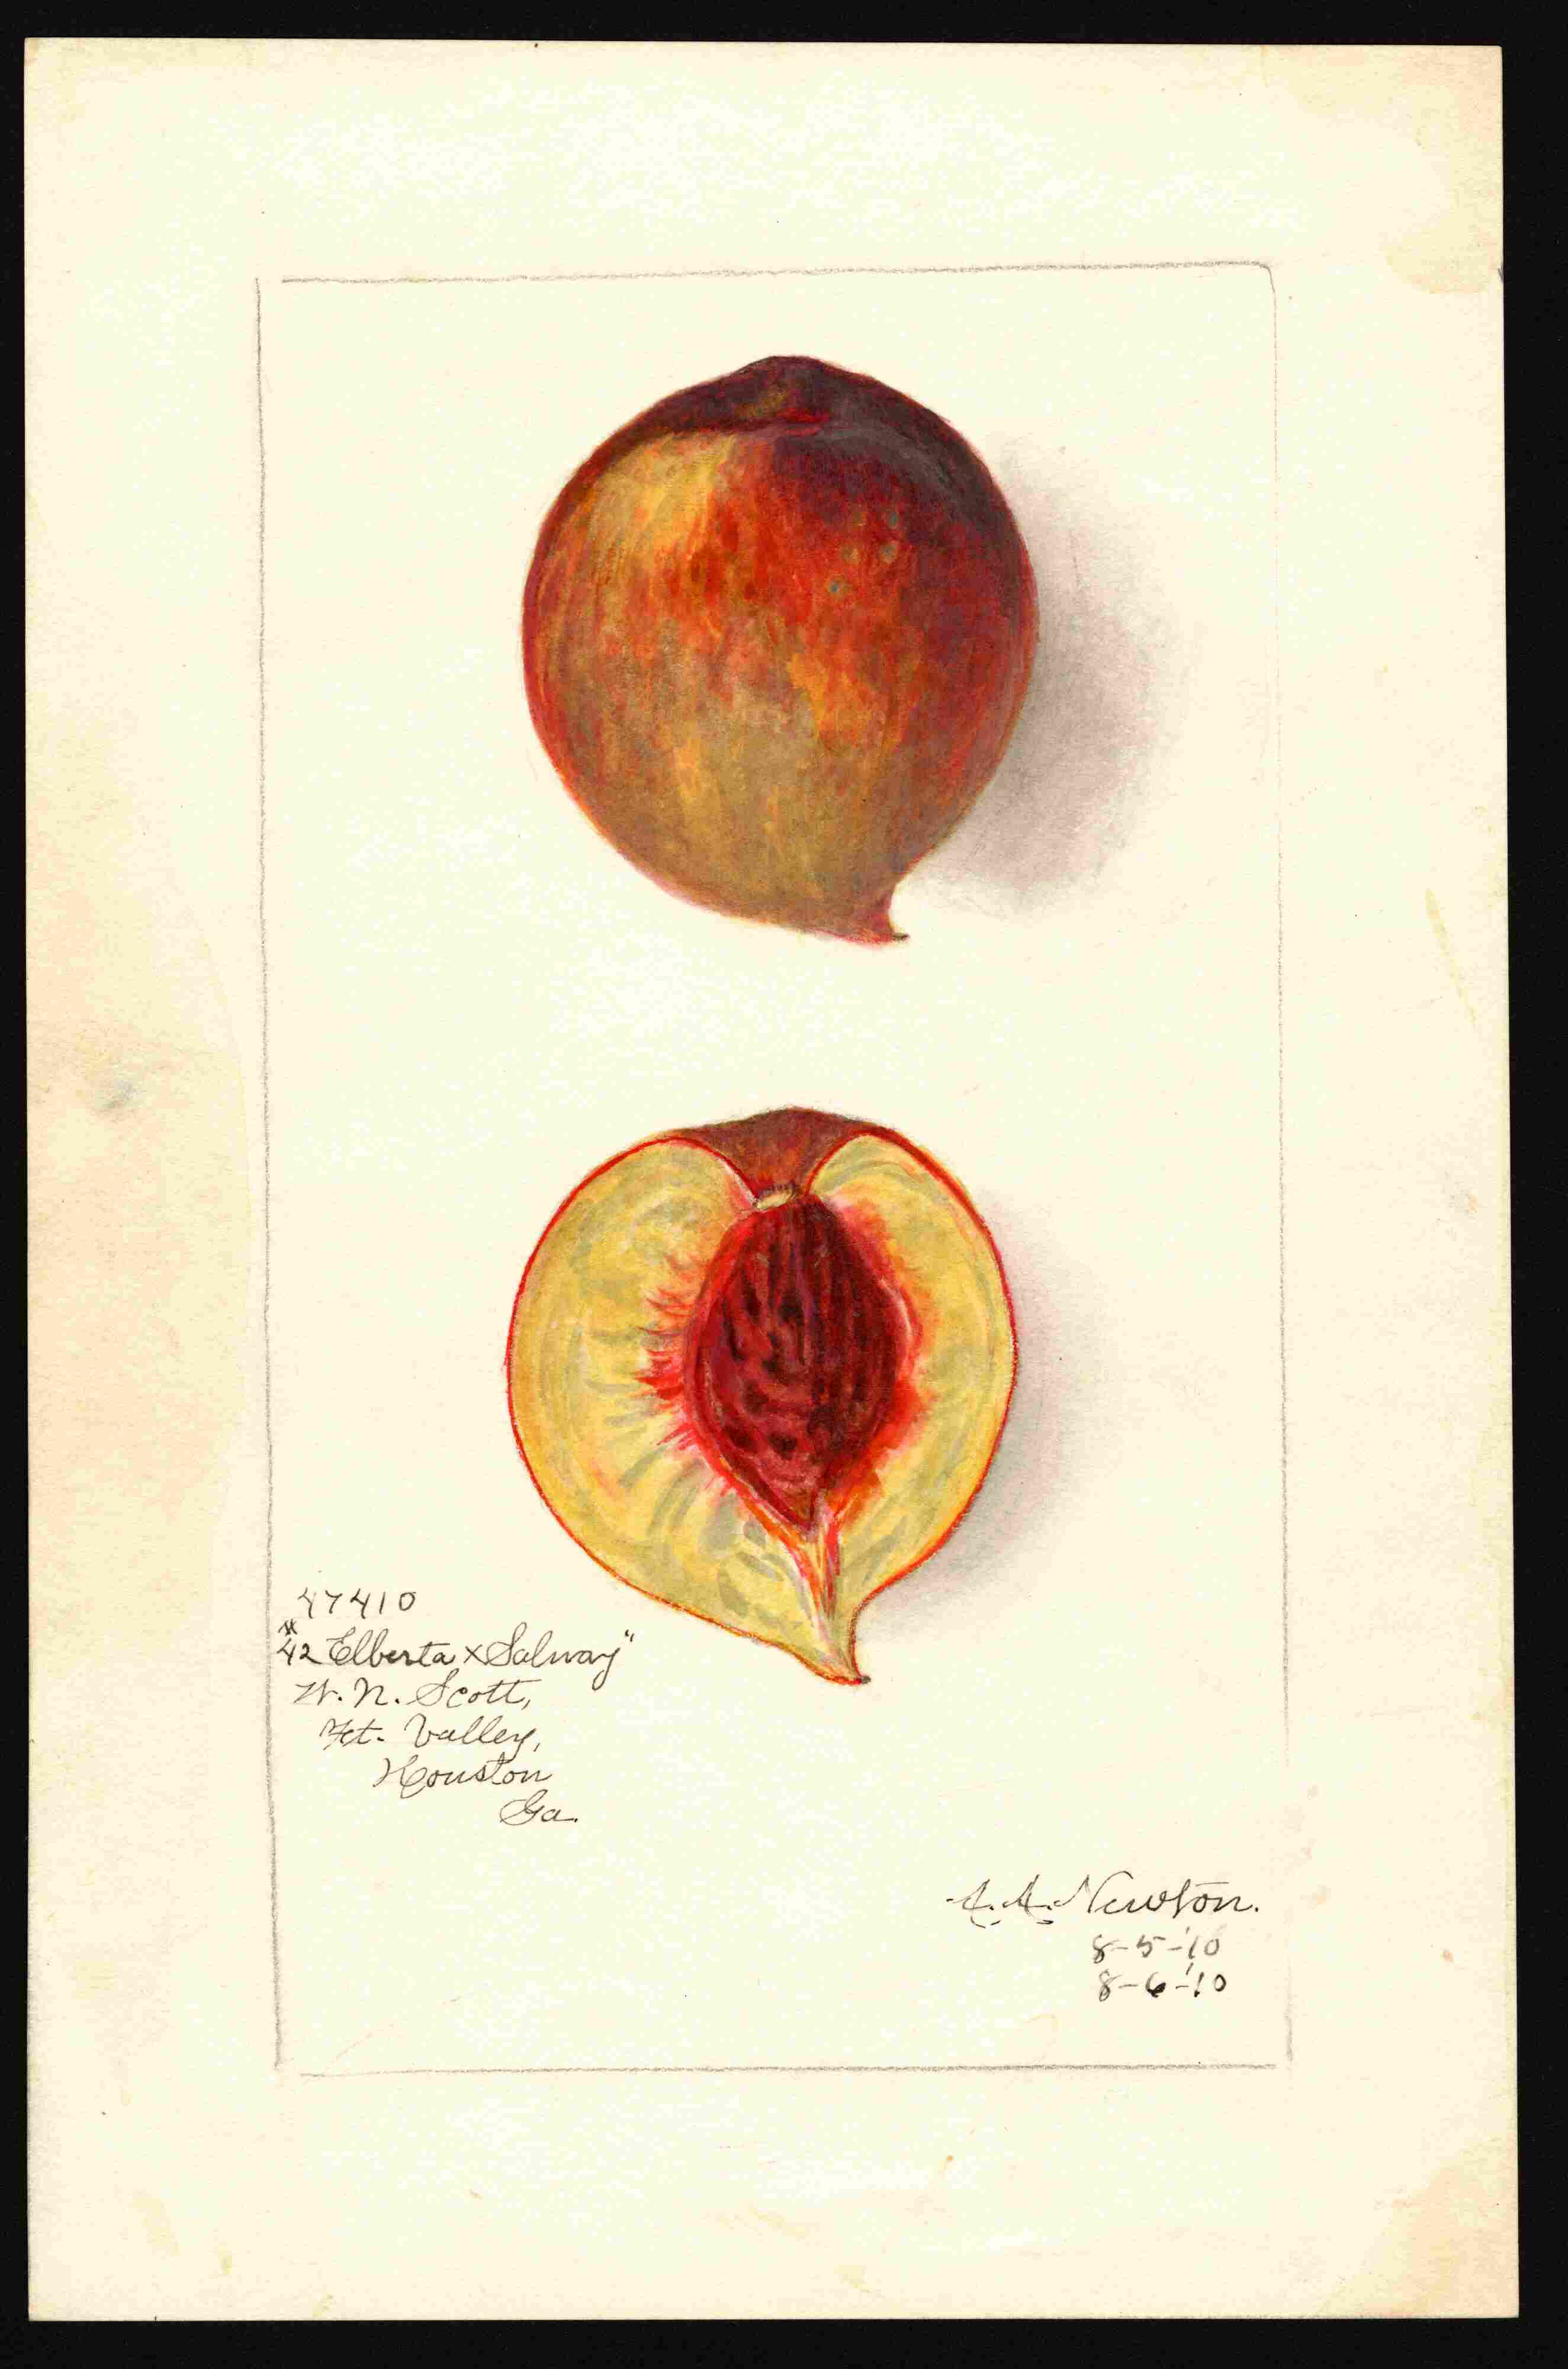 47410
"42 Elberta x Salway"
W. N. Scott,
Ft. Valley,
Houston
Ga.
A. A. Newton.
8-5-'10
8-6-'10